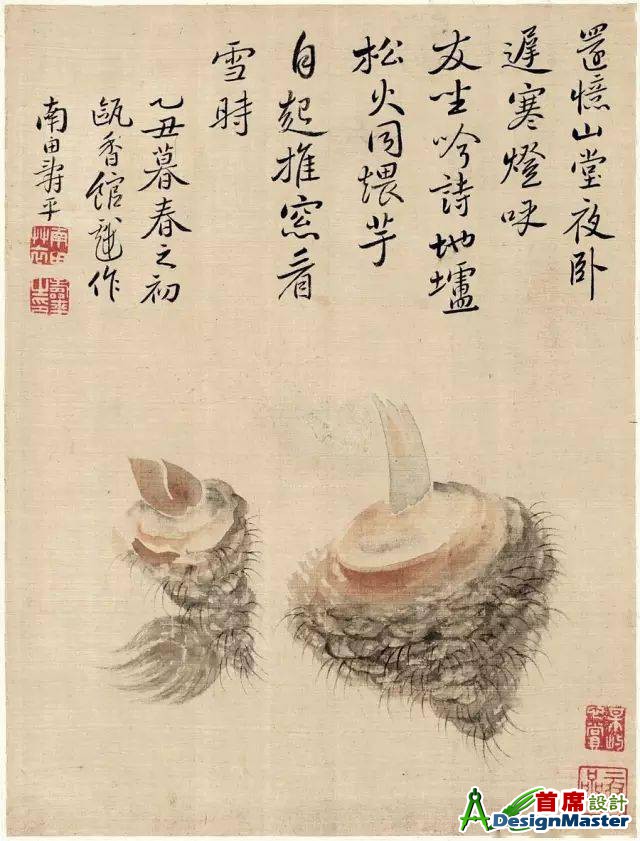 還憶山堂夜卧
遲寒燈呼
友坐吟詩地壚
松火同煨芋
自起推窓看
雪時
乙丑暮春之初
甌香館戲作
南田壽平
首席設計
ADesignMaster